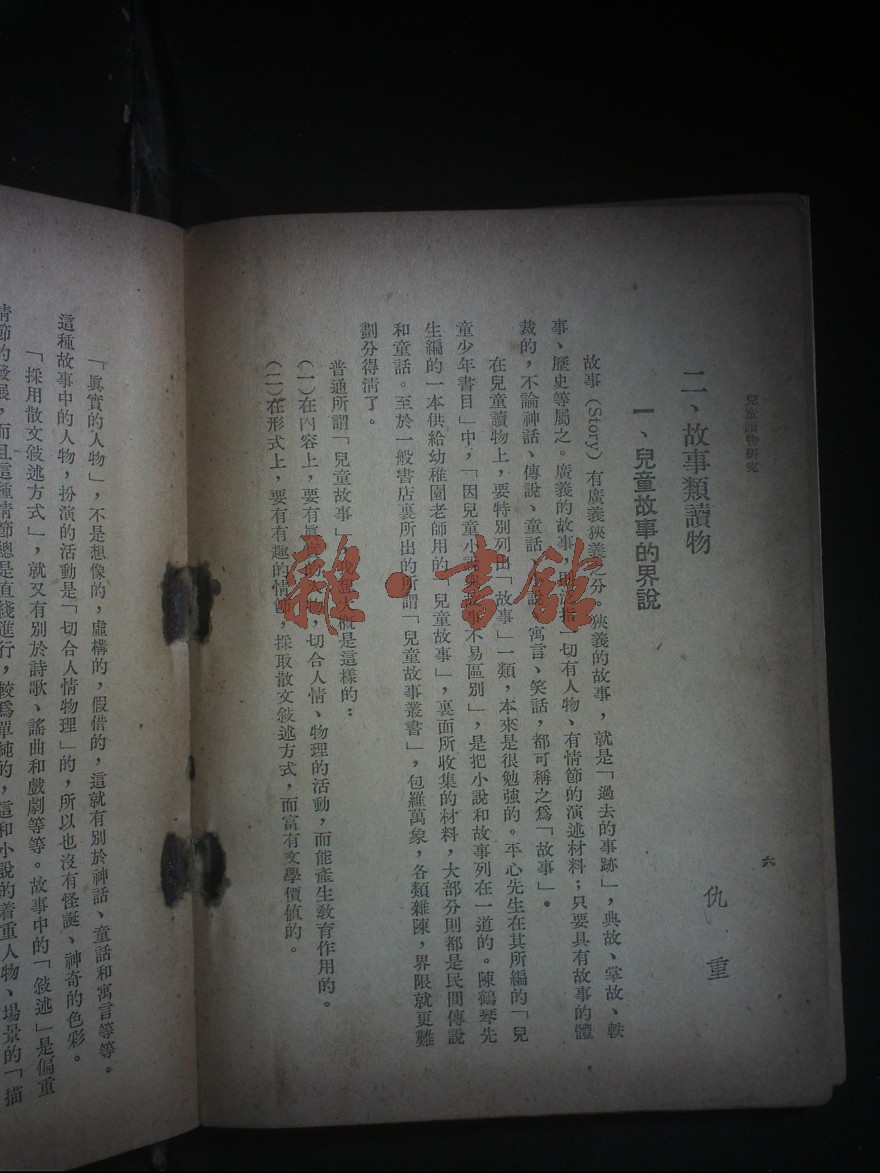 兒童讀物研究
六
二、故事類讀物
仇重
一、兒童故事的界說
故事（Story）有廣義狹義之分，狹義的故事，就是「過去的事跡」，典故、掌故、軼
事、歷史等屬之。廣義的故事，則泛指一切有人物、有情節的演述材料；只要具有故事的體
裁的，不論神話、傳說、童話、小說、寓言、笑話，都可稱之爲「故事」。
在兒童讀物上，要特別列出「故事」一類，本來是很勉強的。平心先生在其所編的「兒
童少年書目」中，「因兒童小說與故事不易區別」，是把小說和故事列在一道的。陳鶴琴先
生編的一本供給幼稚園老師用的「兒童故事」，裏面所收集的材料，大部分則都是民間傳說
和童話。至於一般書店裏所出的所謂「兒童故事叢書」，包羅萬象，各類雜陳，界限就更難
劃分得清了。
普通所謂「兒童故事」，大概是這樣的：
（一）在內容上，要有眞實的人物，切合人情、物理的活動，而能產生教育作用的。
（二）在形式上，要有有趣的情節，採取散文敍述方式，而富有文學價值的。
「眞實的人物」，不是想像的，虛構的，假借的，這就有別於神話、童話和寓言等等。
這種故事中的人物，扮演的活動是「切合人情物理」的，所以也沒有怪誕、神奇的色彩。
「採用散文敍述方式」，就又有別於詩歌、謠曲和戲劇等等。故事中的「敍述」是偏重
情節的發展，而且這種情節總是直綫進行，較爲單純的，這和小說的着重人物、場景的「描
雜·書館